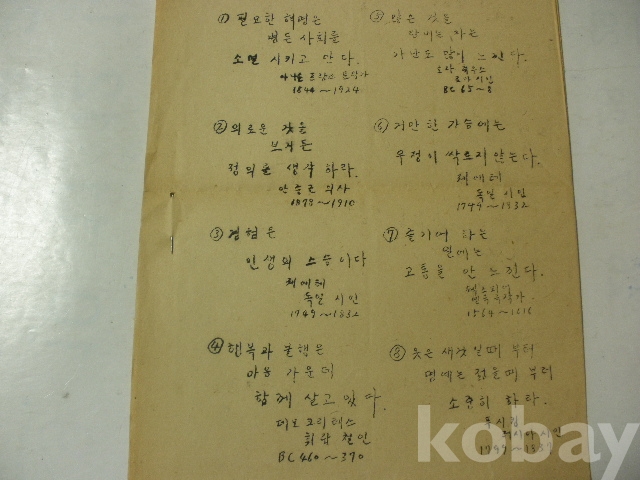 ① 필요한 혁명은
병든 사회를
소멸 시키고 만다.
프랑스 문학가
1844~1924
② 의로운 것을
보거든
정의를 생각 하라.
안중근 의사
1879~1910
③ 경험은
인생의 스승이다
꾀에테
독일 시인
1749~1832
④ 행복과 불행은
마음 가운데
함께 살고 있다.
데모크리테스
희랍 철인
BC 460~370
⑤ 많은 것을
탐내는 자는
가난도 많이 느낀다.
로마 시인
BC 65~8
⑥ 거만한 가슴에는
우정이 싹트지 않는다.
꾀에테
독일 시인
1749~1832
⑦ 즐기여 하는
일에는
고통을 안 느낀다.
1564~1616
⑧ 옷은 새것일때 부터
명예는 젊을때 부터
소중히 하라.
푸시킨
러시아 시인
kobay